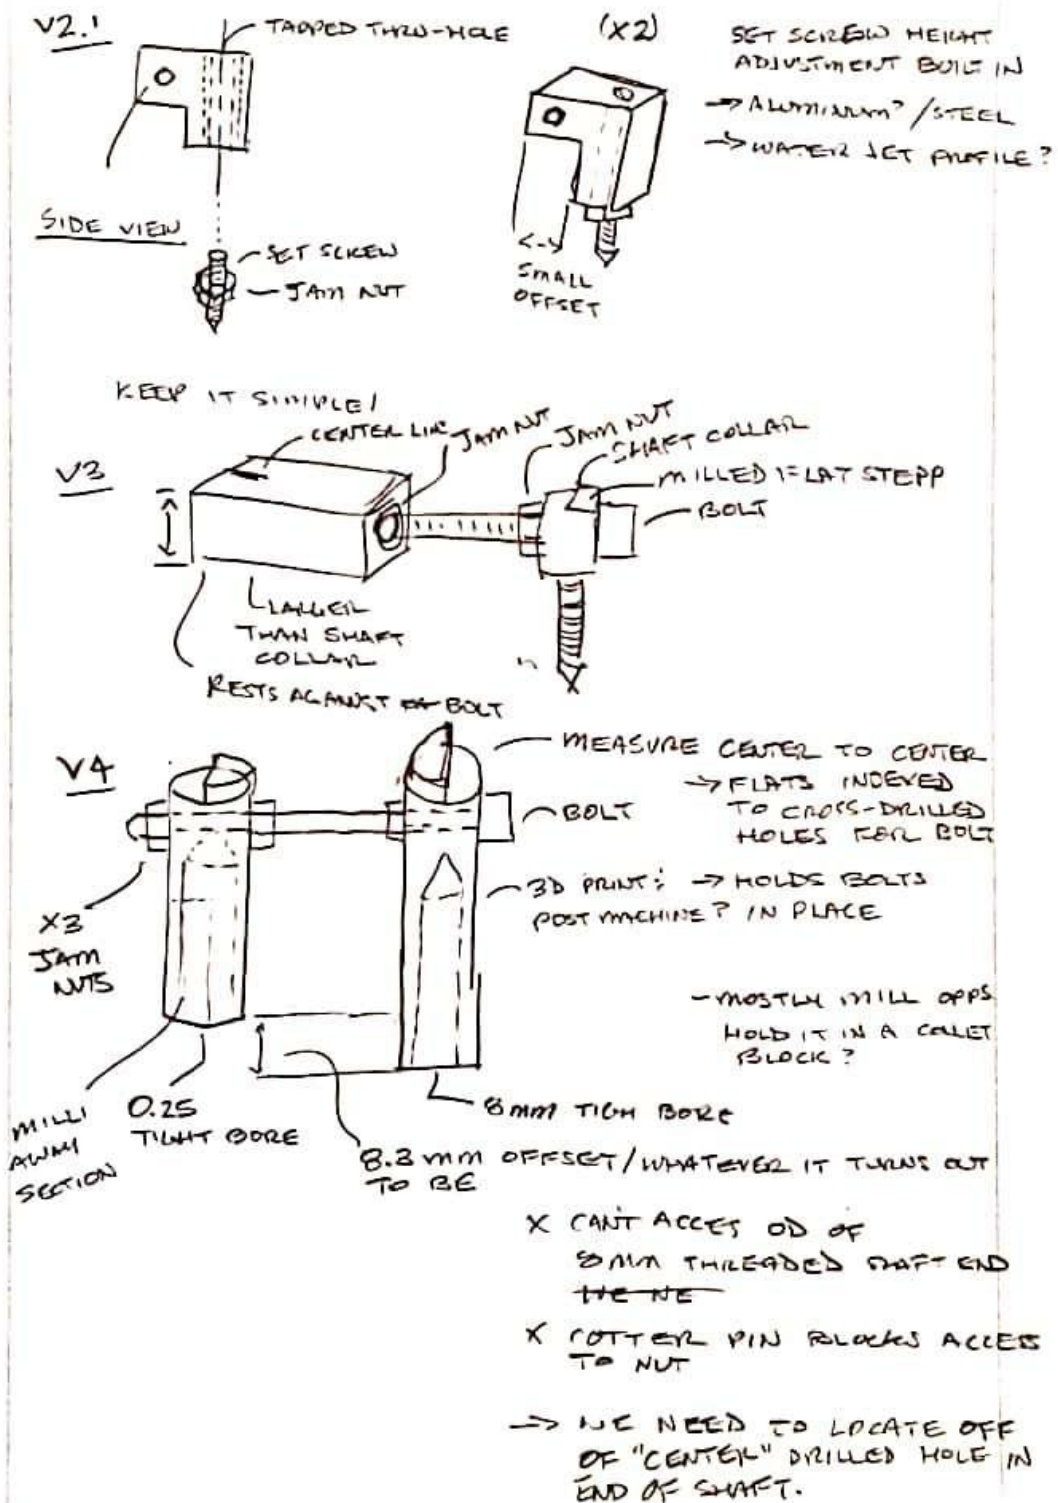 V2.1
TAPPED THRU-HOLE
(X2)
SET SCREW HEIGHT
ADJUSTMENT BUILT IN
→ ALUMINUM? /STEEL
→ WATER JET PROFILE?
SIDE VIEW
SET SCREW
JAM NUT
<->
SMALL
OFFSET
KEEP IT SIMPLE!
V3
CENTER LINE
JAM NUT
JAM NUT
SHAFT COLLAR
MILLED FLAT STEPP
BOLT
LARGER
THAN SHAFT
COLLAR
RESTS AGAINST BOLT
V4
MEASURE CENTER TO CENTER
→ FLATS INDEXED
TO CROSS-DRILLED
HOLES FOR BOLT
BOLT
3D PRINT: → HOLDS BOLTS
POST MACHINE? IN PLACE
X3
JAM
NUTS
- MOSTLY MILL OPPS
HOLD IT IN A COLLET
BLOCK?
MILL
AWAY
SECTION
0.25
TIGHT BORE
8MM TIGH BORE
8.3MM OFFSET/WHATEVER IT TURNS OUT
TO BE
X CAN'T ACCES OD OF
8MM THREADED SHAFT END
X COTTER PIN BLOCKS ACCESS
TO NUT
→ WE NEED TO LOCATE OFF
OF "CENTER" DRILLED HOLE IN
END OF SHAFT.